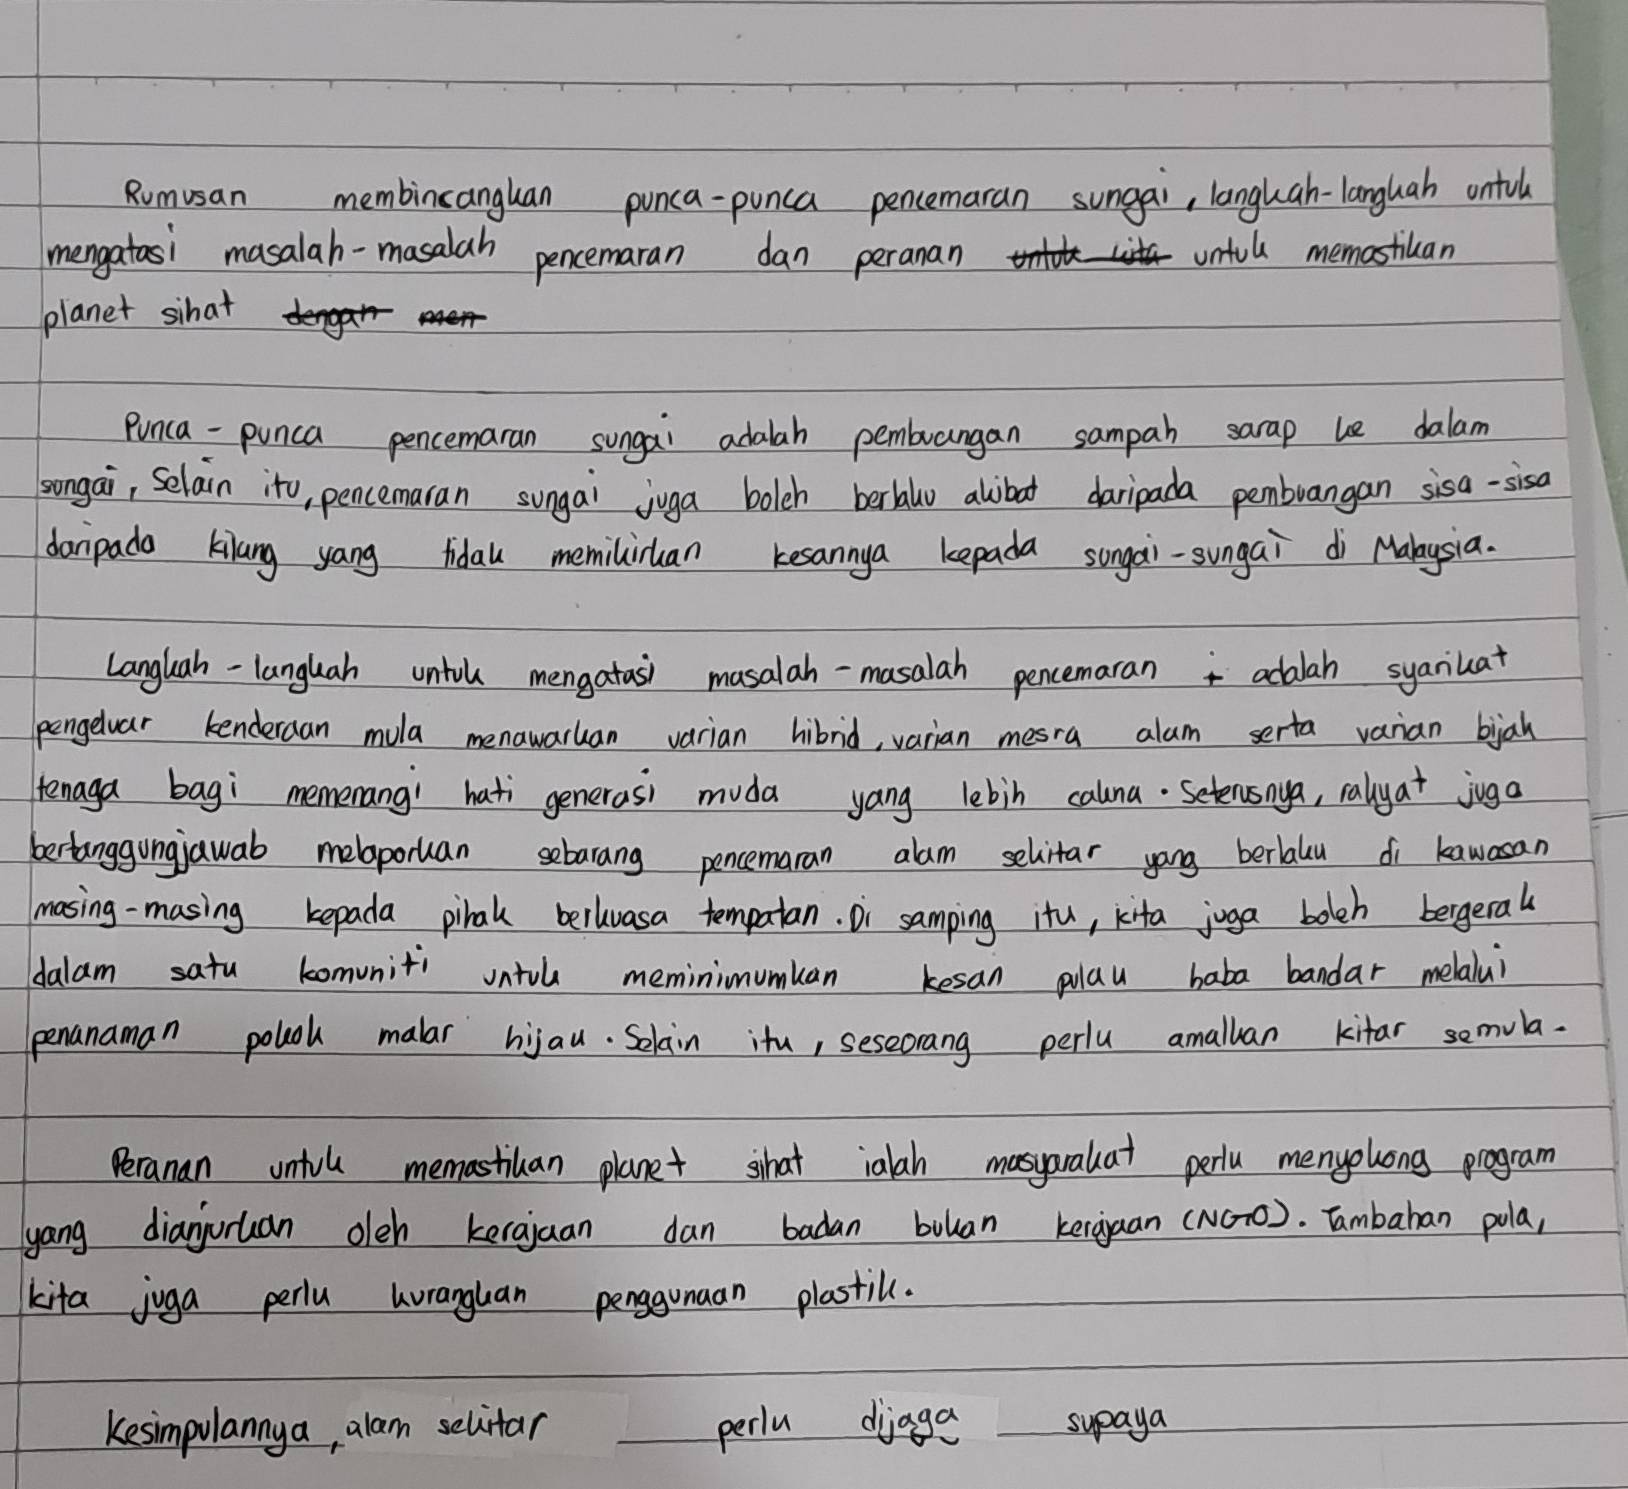 Rumusan membincangkan punca-punca pencemaran sungai, langkah-langkah untuk
mengatasi masalah-masalah pencemaran dan peranan untuk kita untuk memastikan
planet sihat dengan men
Punca-punca pencemaran sungai adalah pembuangan sampah sarap ke dalam
sungai, Selain itu, pencemaran sungai juga boleh berlaku akibat daripada pembuangan sisa-sisa
daripada kilang yang tidak memikirkan kesannya kepada sungai-sungai di Malaysia.
Langkah-langkah untuk mengatasi masalah-masalah pencemaran adalah syarikat
pengeluar kenderaan mula menawarkan varian hibrid, varian mesra alam serta varian bijak
tenaga bagi memenangi hati generasi muda yang lebih cakna. Seterusnya, rakyat juga
bertanggungjawab melaporkan sebarang pencemaran alam sekitar yang berlaku di kawasan
masing-masing kepada pihak berkuasa tempatan. Di samping itu, kita juga boleh bergerak
dalam satu komuniti untuk meminimumkan kesan pulau haba bandar melalui
penanaman pokok malar hijau. Selain itu, seseorang perlu amalkan kitar semula.
Peranan untuk memastikan planet sihat ialah masyarakat perlu menyokong program
yang dianjurkan oleh kerajaan dan badan bukan kerajaan (NGO). Tambahan pula,
kita juga perlu kurangkan penggunaan plastik.
Kesimpulannya, alam sekitar perlu dijaga supaya